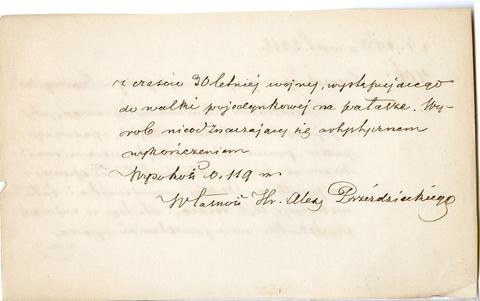 z czasów 30 letniéj wojny, występującego
do walki pojedynkowéj na pałasze. Wy-
rob nieodznaczający się artystycznem
wykończeniem
Wysokość 0.119 m
Własność Hr. Alex Przeździeckiego